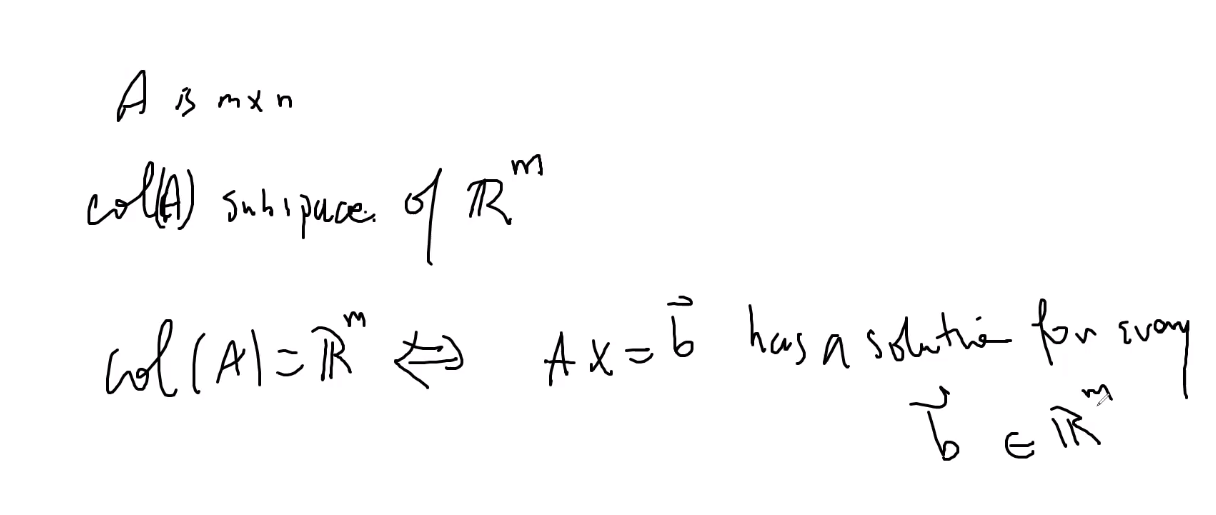 A is m x n
col(A) subspace of ℝᵐ
col(A) = ℝᵐ ⇔ Ax = b⃗ has a solution for every
b⃗ ∈ ℝᵐ